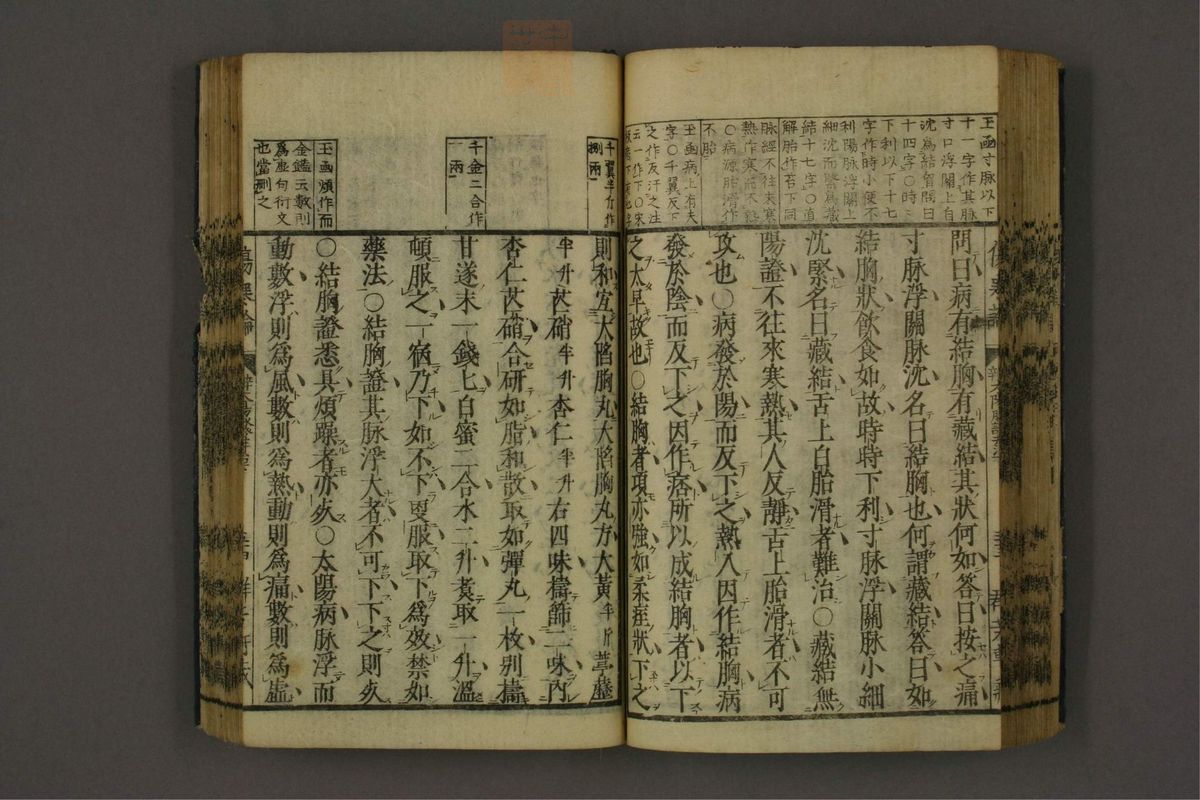 玉凾寸脉以下
十一字作其脉
寸口浮關上自
沈爲結胷問曰
十四字〇時時
下利以下十七
字作時小便不
利陽脉浮關上
細沈而緊爲藏
結十七字〇道
解胎作苔下同
脉經不往來寒
熱作寒而不熱
〇病源胎滑作
不胎
玉凾病上有夫
字〇千翼反下
之作反汗之注
云一作下〇宋
問曰病有結胸有藏結其狀何如答曰按之痛
寸脉浮關脉沈名曰結胸也何謂藏結答曰如
結胸狀飲食如故時時下利寸脉浮關脉小細
沈緊名曰藏結舌上白胎滑者難治〇藏結無
陽證不往來寒熱其人反靜舌上胎滑者不可
攻也〇病發於陽而反下之熱入因作結胸病
發於陰而反下之因作痞所以成結胸者以下
之太早故也〇結胸者項亦強如柔痓狀下之
千翼半斤作
捌兩
千金二合作
一兩
玉凾煩作而
金鑑云數則
爲虛句衍文
也當刪之
則和宜大陷胸丸大陷胸丸方大黃半斤葶藶
半升芒硝半升杏仁半升右四味擣篩二味内
杏仁芒硝合研如脂和散取如彈丸一枚别擣
甘遂末一錢匕白蜜二合水二升煑取一升溫
頓服之一宿乃下如不下更服取下爲效禁如
藥法〇結胸證其脉浮大者不可下下之則死
〇結胸證悉具煩躁者亦死〇太陽病脉浮而
動數浮則爲風數則爲熱動則爲痛數則爲虛
傷寒論